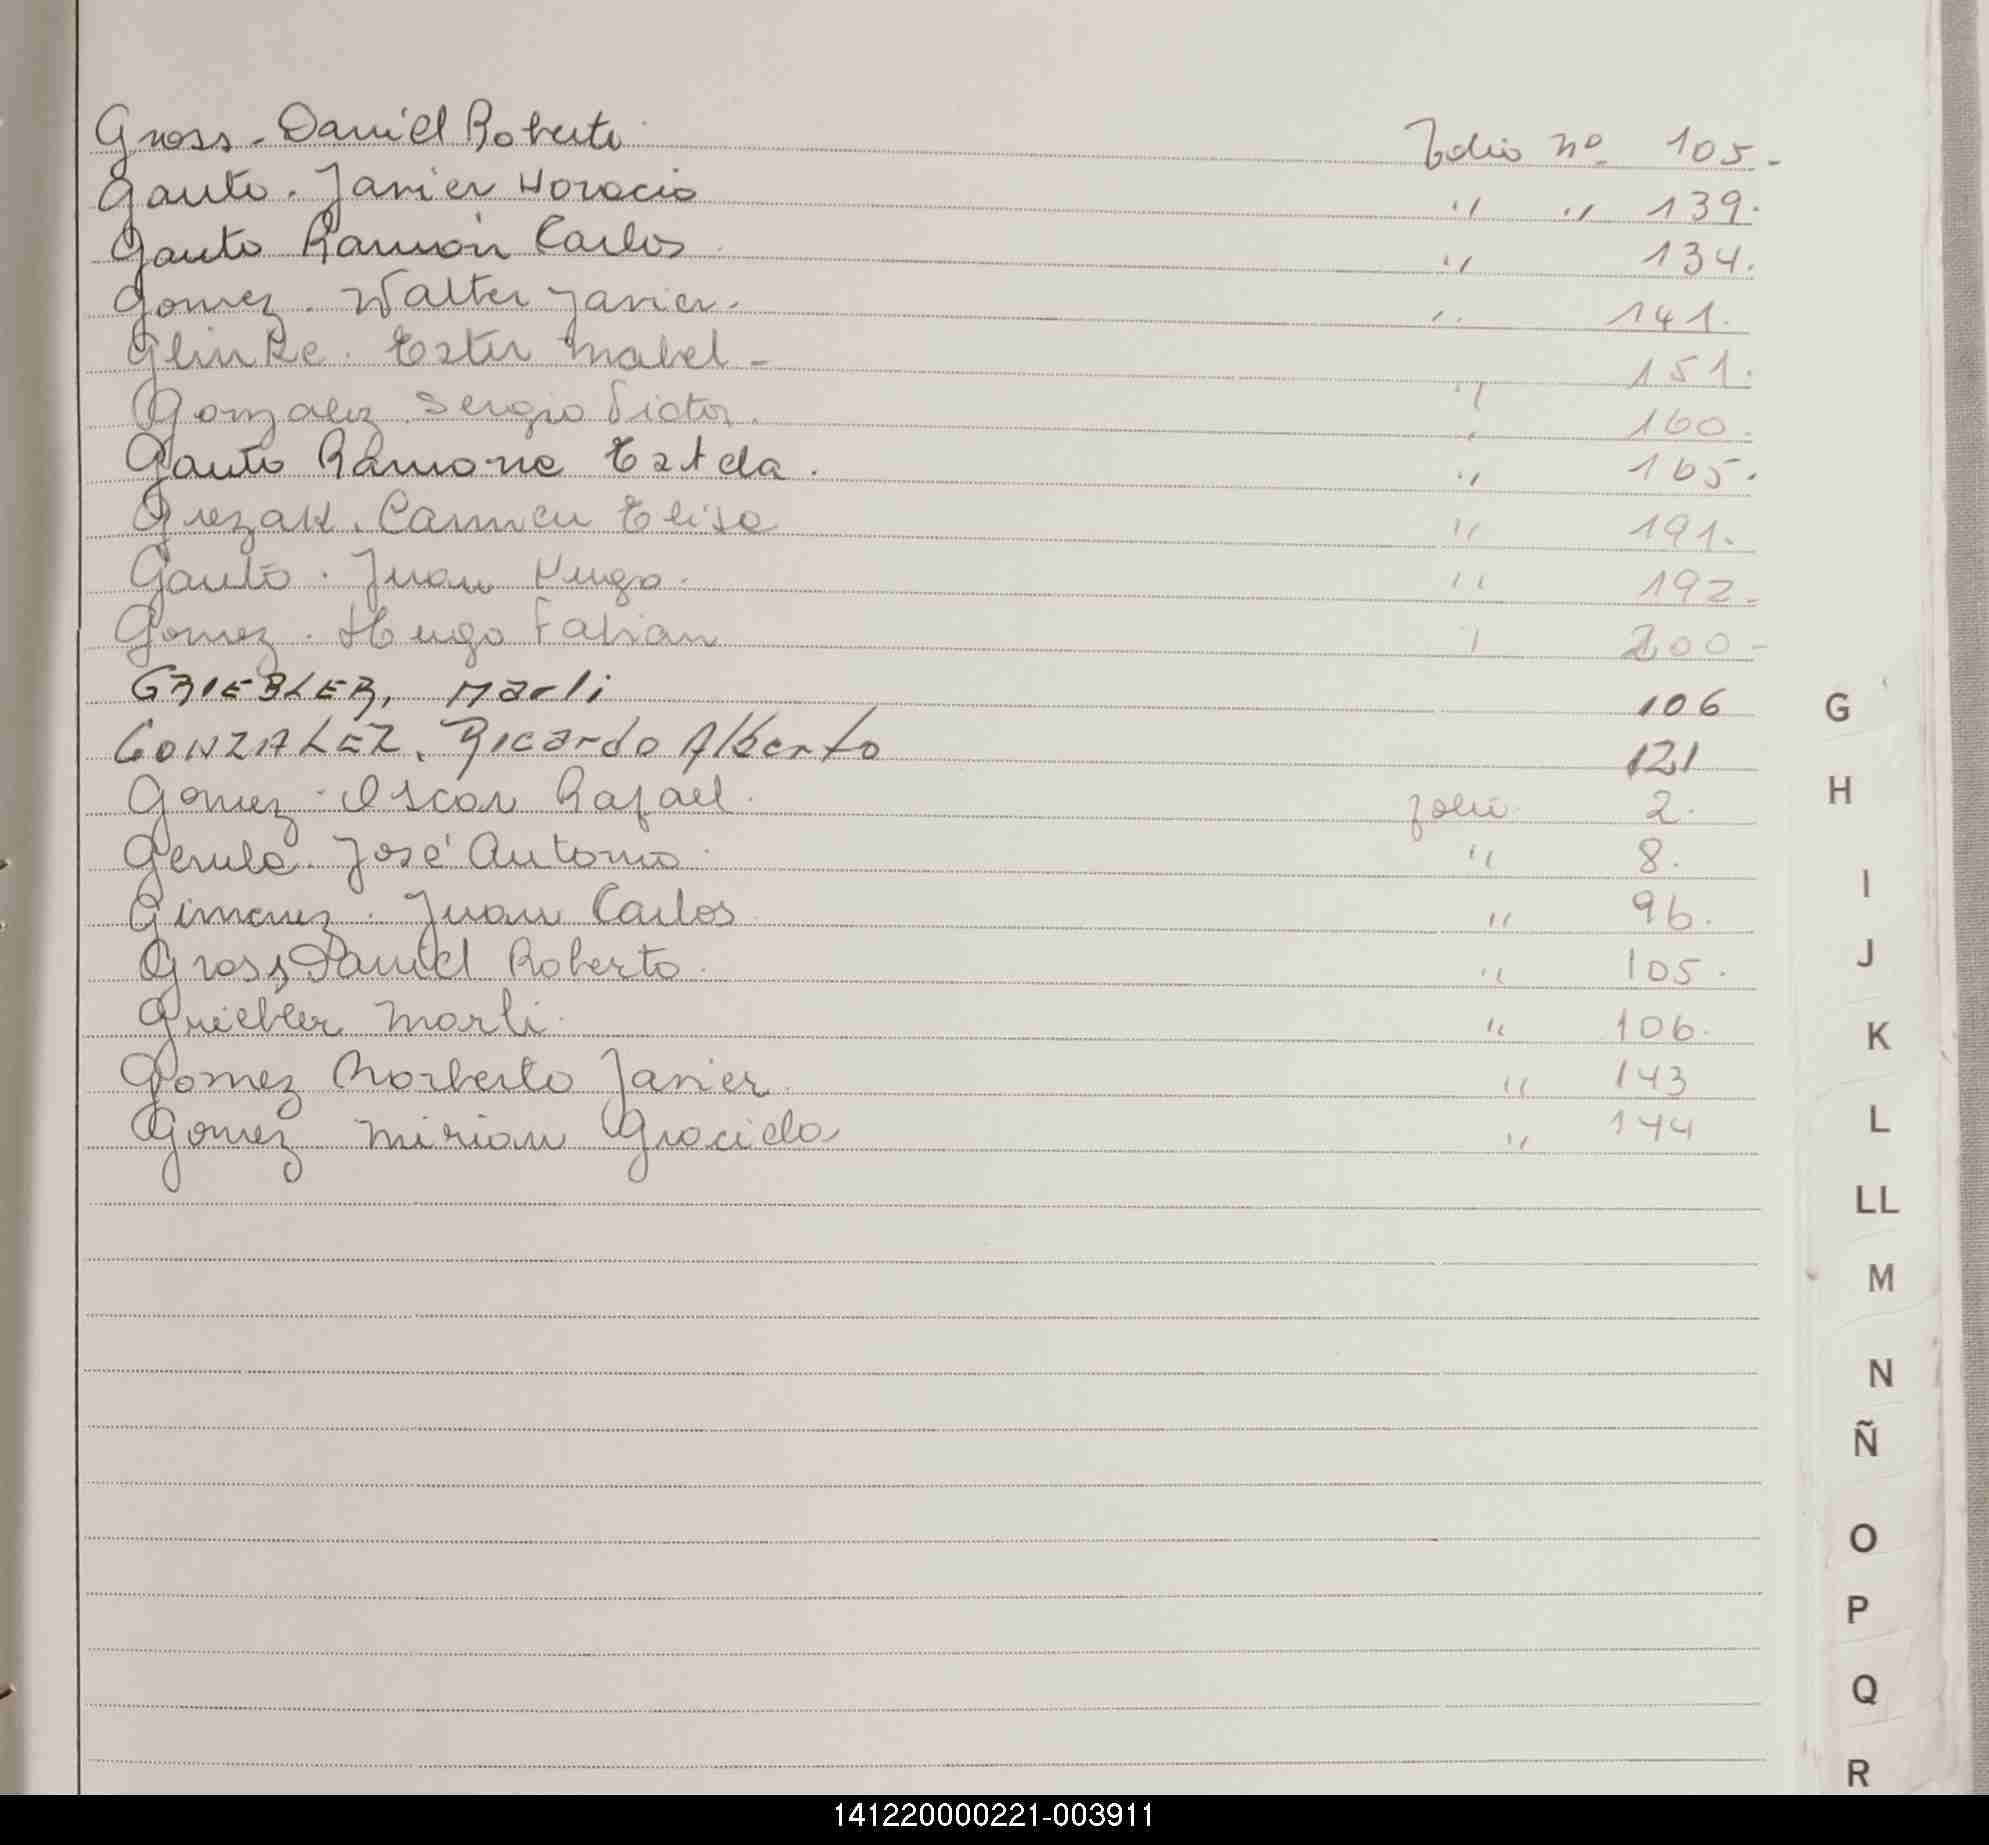 Gross - Daniel Roberto. Folio nº 105.-
Gauto. Javier Horacio " " 139.
Gauto Ramón Carlos. " 134.
Gomez. Walter Javier. " 141.
Glinke. Ester Mabel - 151.
Gonzalez. Sergio Victor. " 160.
Gauto Ramona Estela. " 165.
Grezak. Carmen Elisa " 191.
Gauto. Juan Hugo. " 192.-
Gomez. Hugo Fabian " 200-
GRIEBLER, Marli 106 G
GONZALEZ, Ricardo Alberto 121
Gomez. Oscar Rafael. folio 2. H
Gerula. José Antonio. " 8.
Gimenez. Juan Carlos. " 96. I
Gross, Daniel Roberto. " 105. J
Griebler Marli. " 106. K
Gomez Norberto Javier. " 143
Gomez Mirian Graciela " 144 L
LL
M
N
Ñ
O
P
Q
R
141220000221-003911